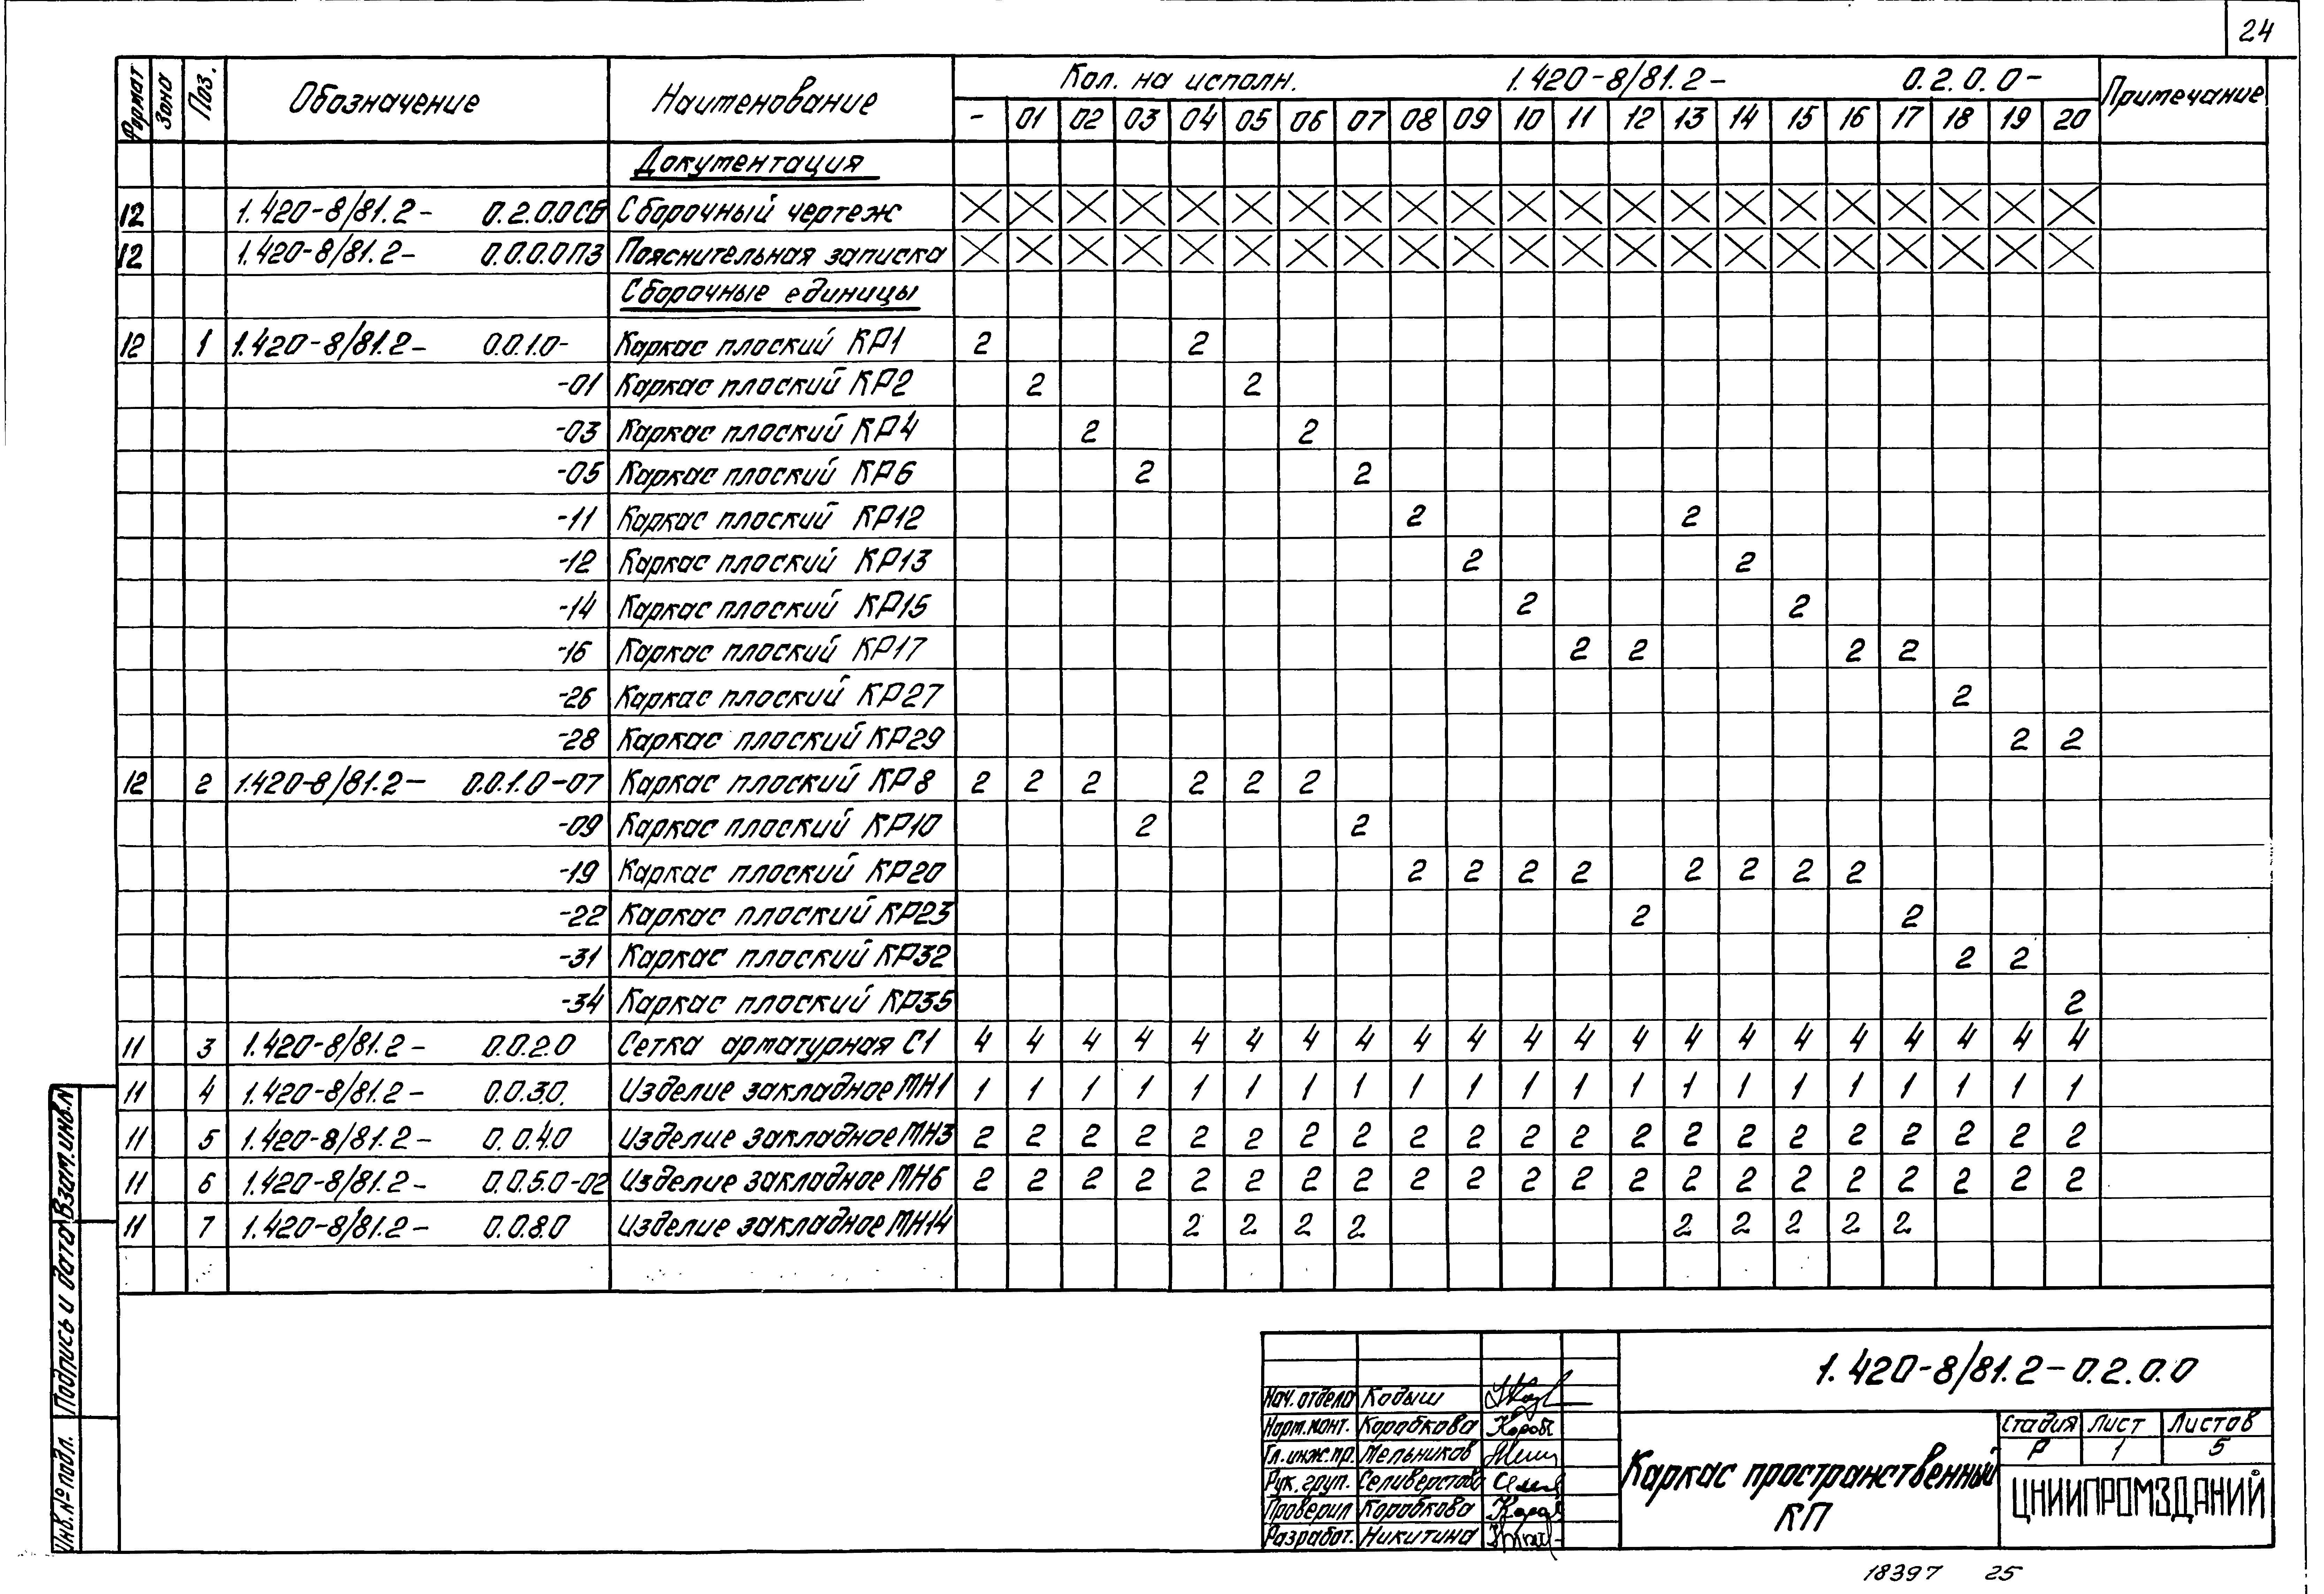 24
Формат Зона Поз. Обозначение Наименование Кол. на исполн. 1.420-8/81.2- 0.2.0.0- Примечание
- 01 02 03 04 05 06 07 08 09 10 11 12 13 14 15 16 17 18 19 20
Документация
12 1.420-8/81.2- 0.2.0.0СБ Сборочный чертеж X X X X X X X X X X X X X X X X X X X X X
12 1.420-8/81.2- 0.0.0.0ПЗ Пояснительная записка X X X X X X X X X X X X X X X X X X X X X
Сборочные единицы
12 1 1.420-8/81.2- 0.0.1.0- Каркас плоский КР1 2 2
-01 Каркас плоский КР2 2 2
-03 Каркас плоский КР4 2 2
-05 Каркас плоский КР6 2 2
-11 Каркас плоский КР12 2 2
-12 Каркас плоский КР13 2 2
-14 Каркас плоский КР15 2 2
-16 Каркас плоский КР17 2 2 2 2
-26 Каркас плоский КР27 2
-28 Каркас плоский КР29 2 2
12 2 1.420-8/81.2- 0.0.1.0-07 Каркас плоский КР8 2 2 2 2 2 2
-09 Каркас плоский КР10 2 2
-19 Каркас плоский КР20 2 2 2 2 2 2 2 2
-22 Каркас плоский КР23 2 2
-31 Каркас плоский КР32 2 2
-34 Каркас плоский КР35 2
11 3 1.420-8/81.2- 0.0.2.0 Сетка арматурная С1 4 4 4 4 4 4 4 4 4 4 4 4 4 4 4 4 4 4 4 4 4
11 4 1.420-8/81.2- 0.0.3.0. Изделие закладное МН1 1 1 1 1 1 1 1 1 1 1 1 1 1 1 1 1 1 1 1 1 1
11 5 1.420-8/81.2- 0.0.4.0 Изделие закладное МН3 2 2 2 2 2 2 2 2 2 2 2 2 2 2 2 2 2 2 2 2 2
11 6 1.420-8/81.2- 0.0.5.0-02 Изделие закладное МН6 2 2 2 2 2 2 2 2 2 2 2 2 2 2 2 2 2 2 2 2 2
11 7 1.420-8/81.2- 0.0.8.0 Изделие закладное МН14 2 2 2 2 2 2 2 2 2
Взам.инв.№
Подпись и дата
Инв.№ подл.
1.420-8/81.2-0.2.0.0
Нач.отдела Кодыш
Норм.конт. Коробкова
Гл.инж.пр. Мельников
Рук.груп. Селиверстова
Проверил Коробкова
Разработ. Никитина
Каркас пространственный
КП
Стадия Лист Листов
Р 1 5
ЦНИИПРОМЗДАНИЙ
18397 25